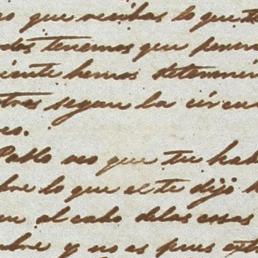 que recibas lo que te
dos tenemos que pensa
ciente hemos determin
tras segun la circun
os.
Pablo veo que tu hab
bre lo que el te dijo
en al cabo de las cosas
y no es pues